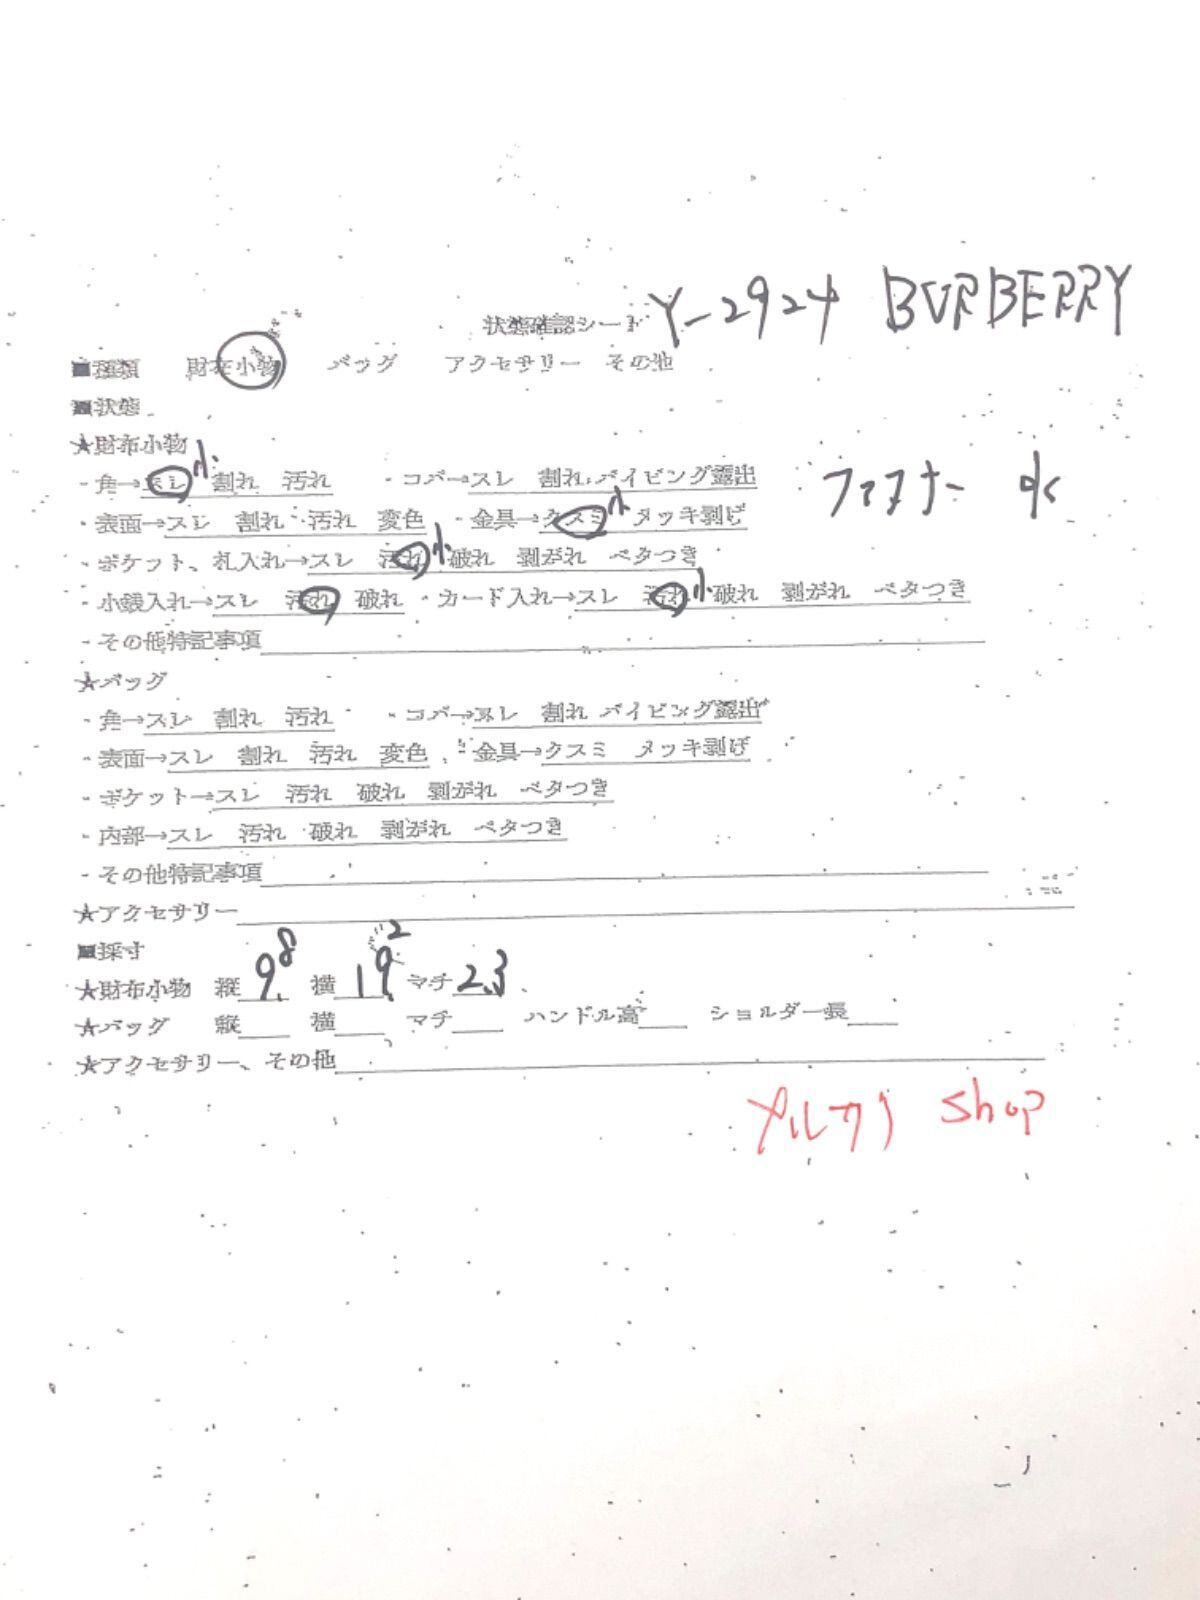 状態確認シート Y-2924 BURBERRY
■種類 財布小物 バッグ アクセサリー その他
■状態
★財布小物
・角→スレ 小 割れ 汚れ ・コバ→スレ 割れ パイピング露出 ファスナー
・表面→スレ 割れ 汚れ 変色 ・金具→クスミ 小 メッキ剥げ
・ポケット、札入れ→スレ 汚れ 小 破れ 剥がれ ベタつき
・小銭入れ→スレ 汚れ 破れ ・カード入れ→スレ 汚れ 小 破れ 剥がれ ベタつき
・その他特記事項
★バッグ
・角→スレ 割れ 汚れ ・コバ→スレ 割れ パイピング露出
・表面→スレ 割れ 汚れ 変色 ・金具→クスミ メッキ剥げ
・ポケット→スレ 汚れ 破れ 剥がれ ベタつき
・内部→スレ 汚れ 破れ 剥がれ ベタつき
・その他特記事項
★アクセサリー
■採寸
★財布小物 縦 9.8 横 19.2 マチ 2.3
★バッグ 縦 横 マチ ハンドル高 ショルダー長
★アクセサリー、その他
メルカリ shop